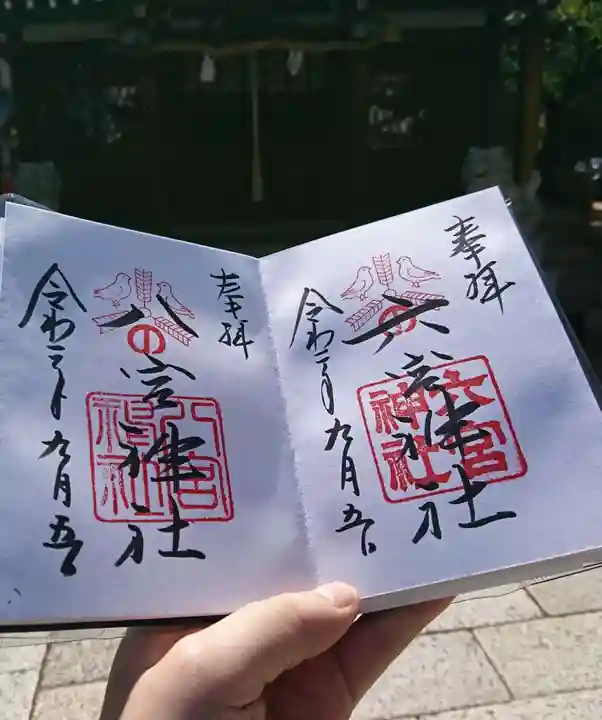 奉拝
六の宮神社
六宮神社
令和 年九月五日
奉拝
八の宮神社
八宮神社
令和 年九月五日